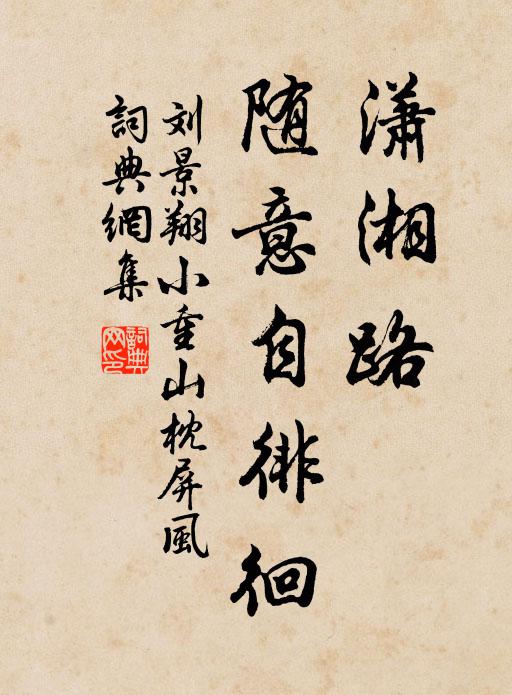 潇湘路
随意自徘徊
刘景翔小重山枕屏風
詞典網集
詞典
网印